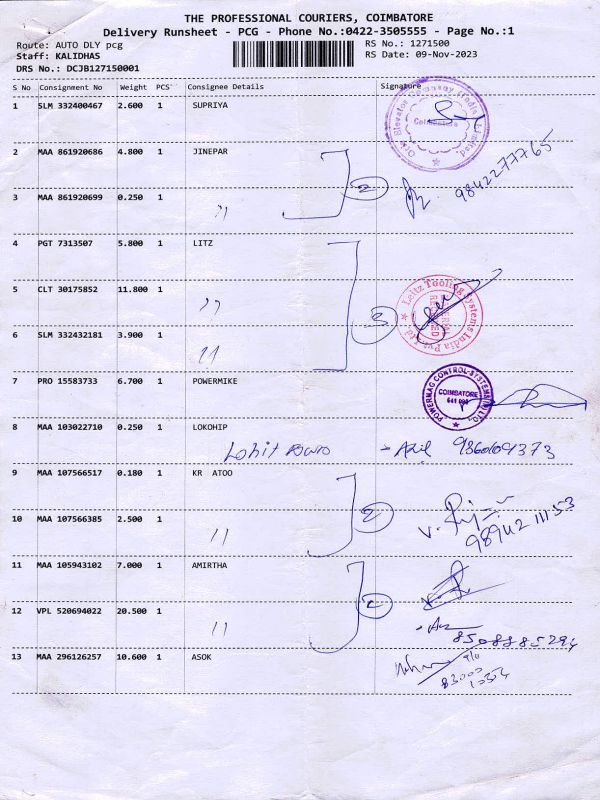 THE PROFESSIONAL COURIERS, COIMBATORE
Delivery Runsheet - PCG - Phone No.:0422-3505555 - Page No.:1
Route: AUTO DLY pcg RS No.: 1271500
Staff: KALIDHAS RS Date: 09-Nov-2023
DRS No.: DCJB127150001
S No Consignment No Weight PCS Consignee Details Signature
1 SLM 332400467 2.600 1 SUPRIYA
Coimbatore
2 MAA 861920686 4.800 1 JINEPAR
2 9842277765
3 MAA 861920699 0.250 1 〃
4 PGT 7313507 5.800 1 LITZ
5 CLT 30175852 11.800 1 〃
3 Leitz Tooling Systems India Pvt Ltd.
6 SLM 332432181 3.900 1 〃
7 PRO 15583733 6.700 1 POWERMIKE
POWERMAG CONTROL SYSTEMS (P) LTD. COIMBATORE
8 MAA 103022710 0.250 1 LOKOHIP
9 MAA 107566517 0.180 1 KR ATOO
2 98942 11153
10 MAA 107566385 2.500 1 〃
11 MAA 105943102 7.000 1 AMIRTHA
2
12 VPL 520694022 20.500 1 〃
8508885294
13 MAA 296126257 10.600 1 ASOK